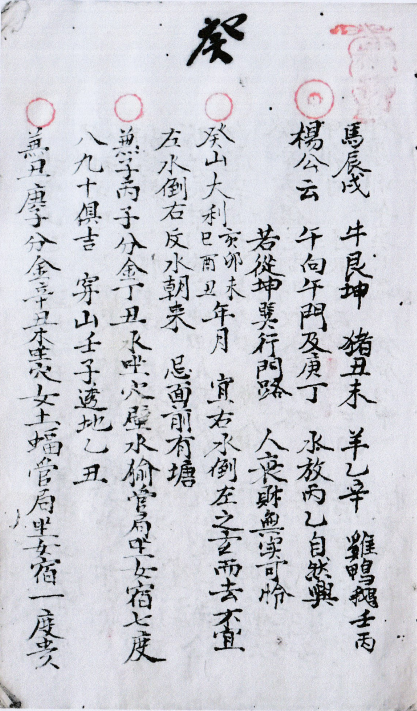 癸
馬辰戌 牛艮坤 猪丑未 羊乙辛 雞鴨鵝壬丙
楊公云 午向午門及庚丁 水放丙乙自然興
若從坤巽行門路 人衰財無实可怜
癸山大利亥卯未巳酉丑年月 宜右水倒左之玄而去不宜
左水倒右反水朝来 忌面前有塘
兼子丙子分金丁丑水坐火度水偷管局坐女宿七度
八九十俱吉 穿山壬子透地乙丑
兼丑庚子分金辛丑未坐穴女土蝠管局坐女宿一度贵